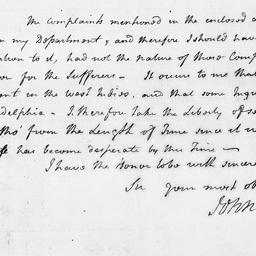 The Complaints mentioned in the enclosed a
in my Department, and therefore I should have
ation to it, had not the nature of those Comp
or for the Sufferers — It occurs to me that
ent in the west Indies, and that some Inqu
delphia — I therefore take the Liberty of se
tho' from the Length of Time since it w
has become desperate by this Time —
I have the Honor to be with sincere
Sir your most ob
John